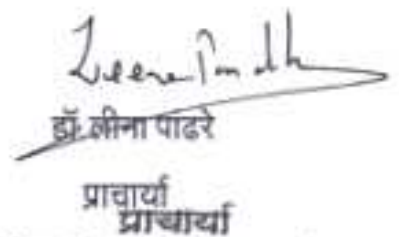 डॉ. लीना पाढरे
प्राचार्या
प्राचार्या